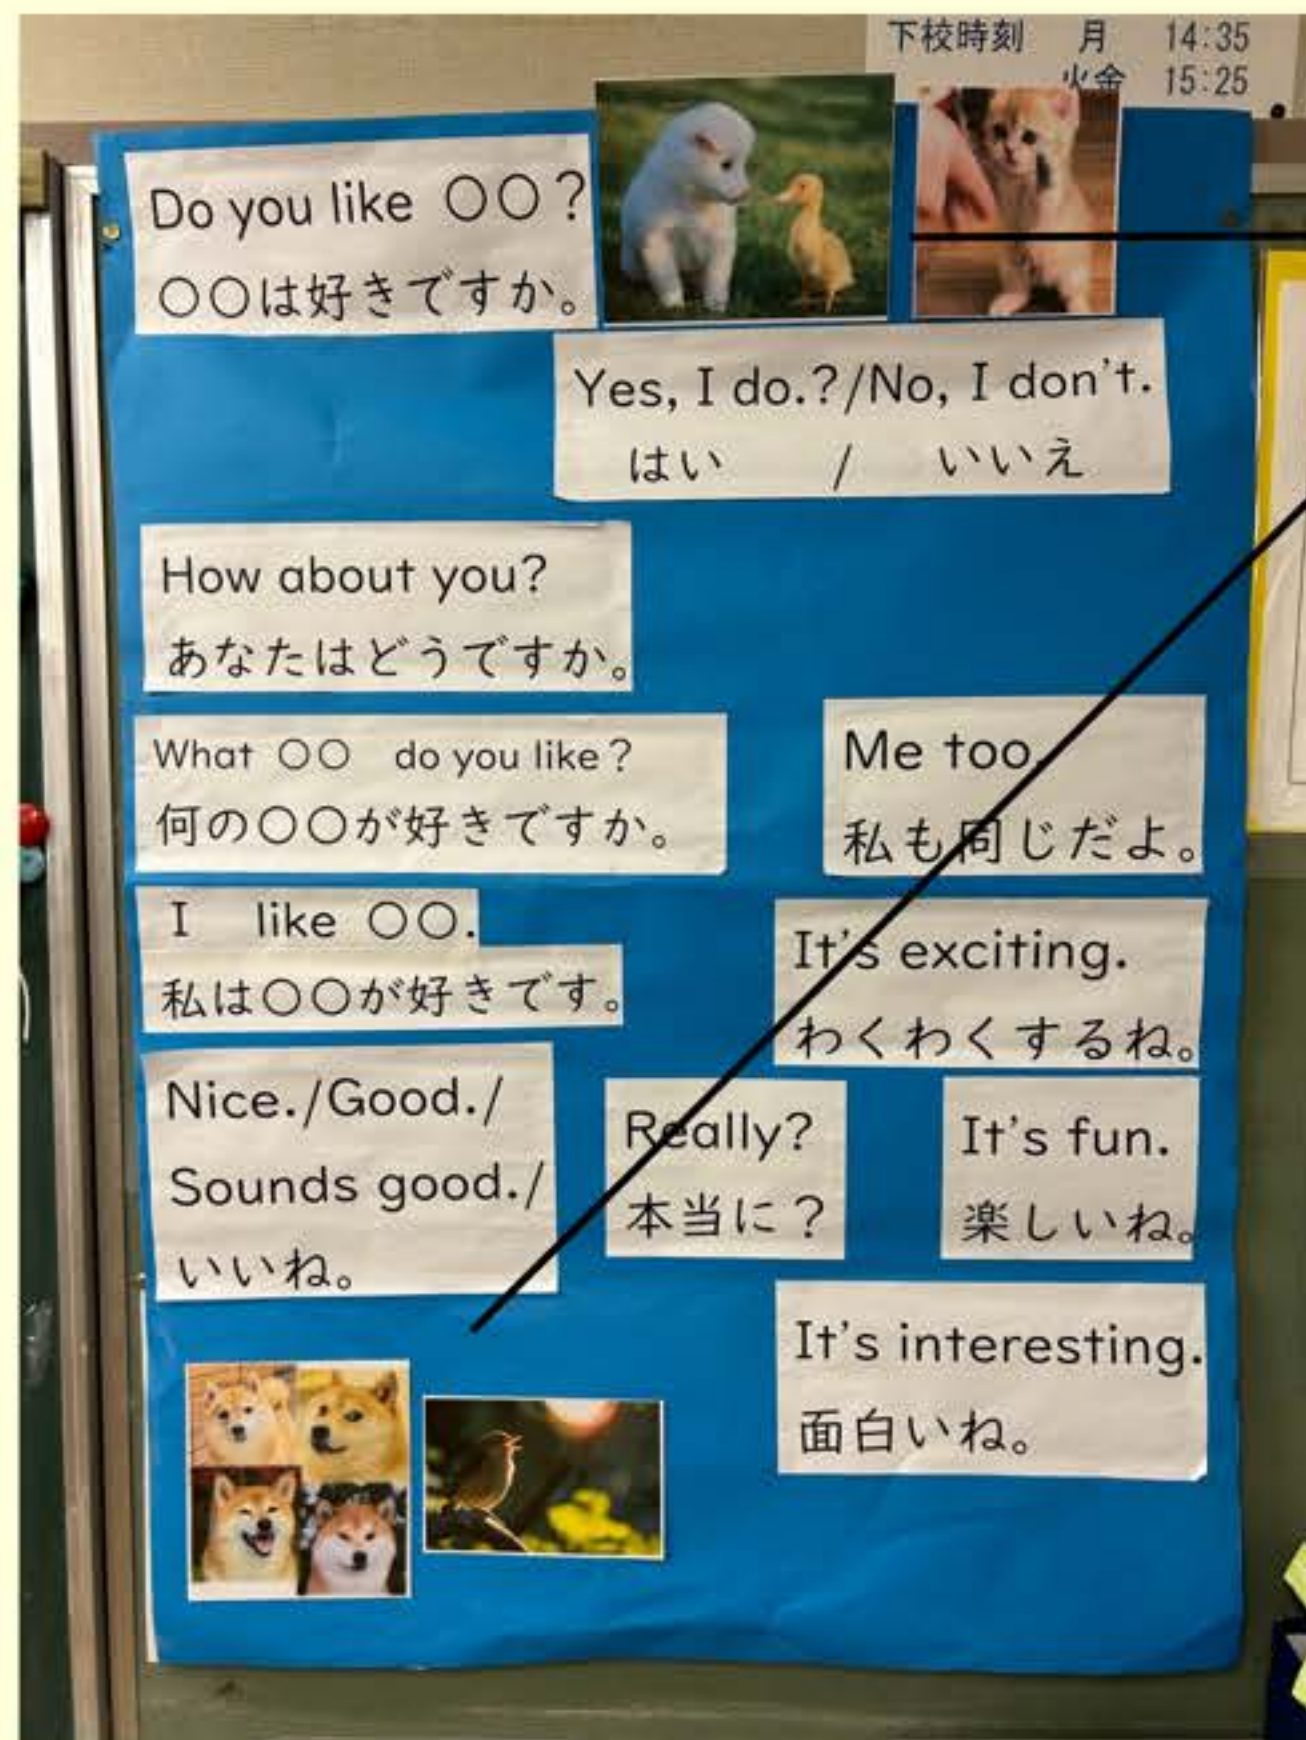 下校時刻 月 14:35
火金 15:25
Do you like 〇〇?
〇〇は好きですか。
Yes, I do.?/No, I don't.
はい / いいえ
How about you?
あなたはどうですか。
What 〇〇 do you like?
何の〇〇が好きですか。
Me too.
私も同じだよ。
I like 〇〇.
私は〇〇が好きです。
It's exciting.
わくわくするね。
Nice./Good./
Sounds good./
いいね。
Really?
本当に?
It's fun.
楽しいね。
It's interesting.
面白いね。